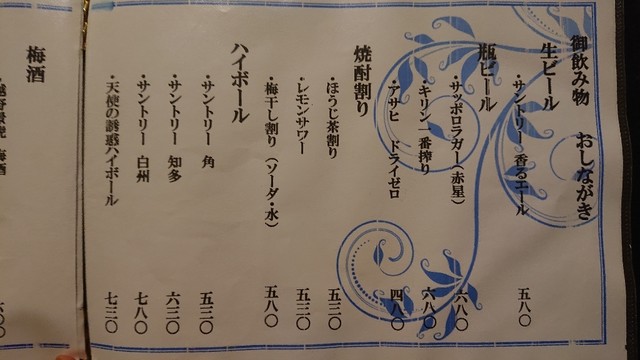 御飲み物 おしながき
生ビール
・サントリー 香るエール 五八〇
瓶ビール
・サッポロラガー(赤星) 六八〇
・キリン一番搾り 六八〇
・アサヒ ドライゼロ 四八〇
焼酎割り
・ほうじ茶割り 五三〇
・レモンサワー 五三〇
・梅干し割り(ソーダ・水) 五八〇
ハイボール
・サントリー 角 五三〇
・サントリー 知多 六三〇
・サントリー 白州 七八〇
・天使の誘惑ハイボール 七三〇
梅酒
梅酒